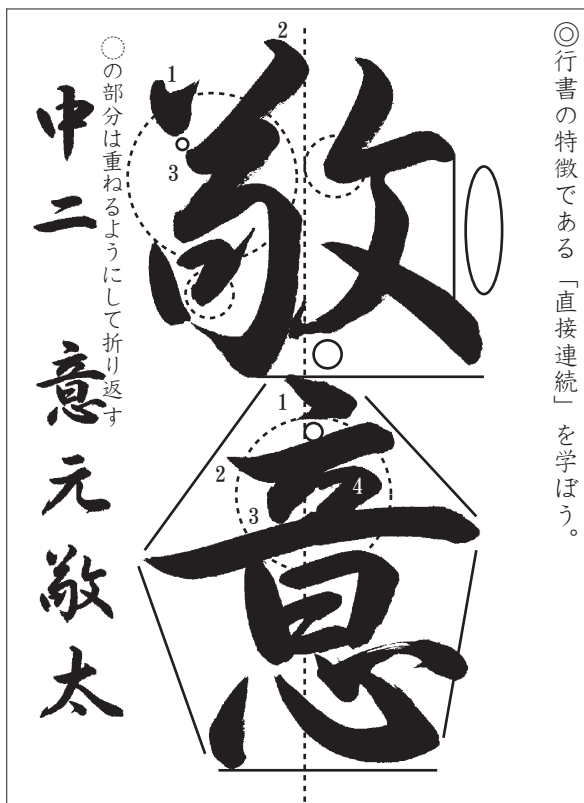 ◎行書の特徴である「直接連続」を学ぼう。
敬意
1
2
3
1
2
3
4
◌の部分は重ねるようにして折り返す
中二 意元敬太